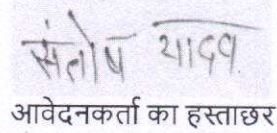 संतोष यादव
आवेदनकर्ता का हस्ताछर